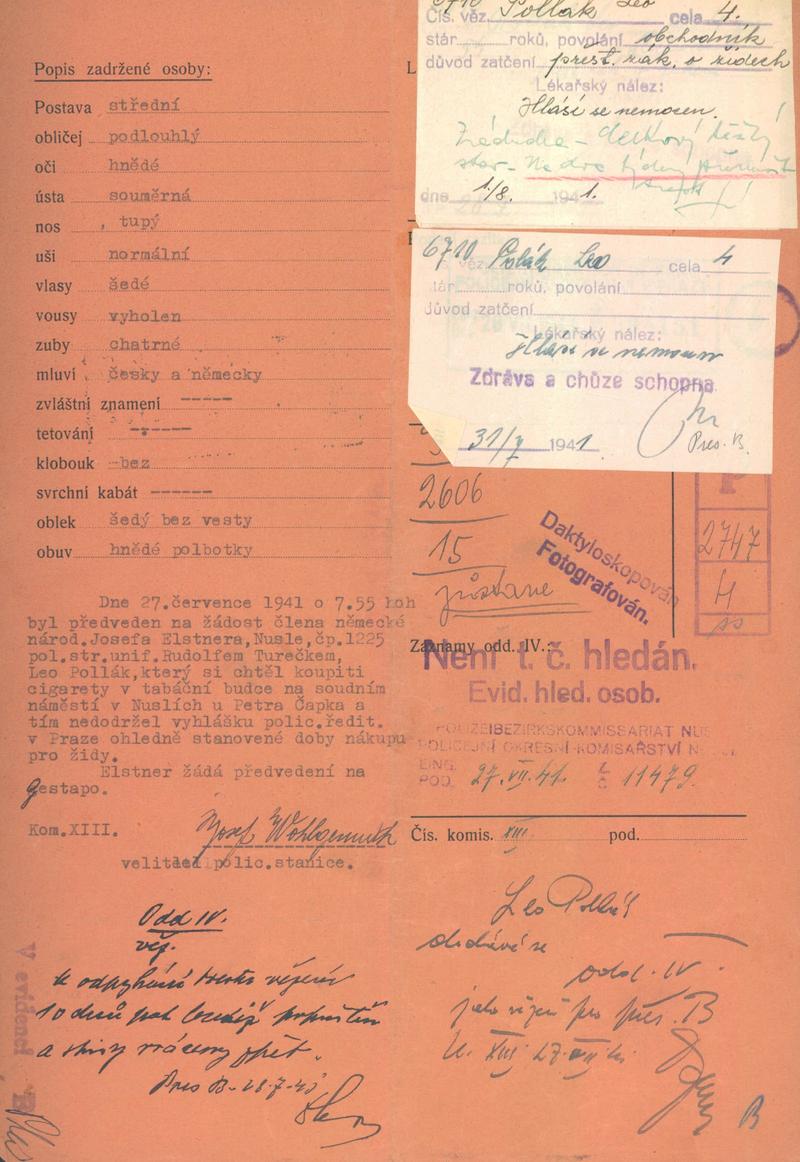 Popis zadržené osoby:
Postava střední
obličej podlouhlý
oči hnědé
ústa souměrná
nos , tupý
uši normální
vlasy šedé
vousy vyholen
zuby chatrné
mluví česky a německy
zvláštní znamení -----
tetování ------
klobouk bez
svrchní kabát ------
oblek šedý bez vesty
obuv hnědé polbotky
Dne 27.července 1941 o 7.55 hoh
byl předveden na žádost člena německé
národ.Josefa Elstnera,Nusle,čp.1225
pol.str.unif.Rudolfem Turečkem,
Leo Pollák,který si chtěl koupiti
cigarety v tabáční budce na soudním
náměstí v Nuslích u Petra Čapka a
tím nedodržel vyhlášku polic.ředit.
v Praze ohledně stanovené doby nákupu
pro židy.
Elstner žádá předvedení na
gestapo.
Kom.XIII.
Josef Wohlgemuth
velitel polic.stanice.
Odd IV.
věz.
10 dnů
a zpět.
Pres B- 28-7-41
V evidenci "B"
Čís. věz. Pollak Leo cela 4.
stár roků, povolání obchodník
důvod zatčení přest. zák. o židech
Lékařský nález:
Hlásí se nemocen.
dne 1/8. 1941.
6710 Polák Leo cela 4
stár roků, povolání
důvod zatčení
Lékařský nález:
Hlásí se nemocen
Zdráva a chůze schopna
31/7 1941
Pres. B.
2606
15
zůstane
Daktyloskopován
Fotografován.
2747
H
Záznamy odd. IV.:
Není t. č. hledán.
Evid. hled. osob.
POLIZEIBEZIRKSKOMMISSARIAT NUS
POLICEJNÍ OKRESNÍ KOMISAŘSTVÍ N
EING.
POD. 27.VII.41. 11479.
Čís. komis. XIII. pod.
Leo Pollák
dodává se
odd. IV.
jako vězeň pro pres. B
K. XIII 27 VII 41
B